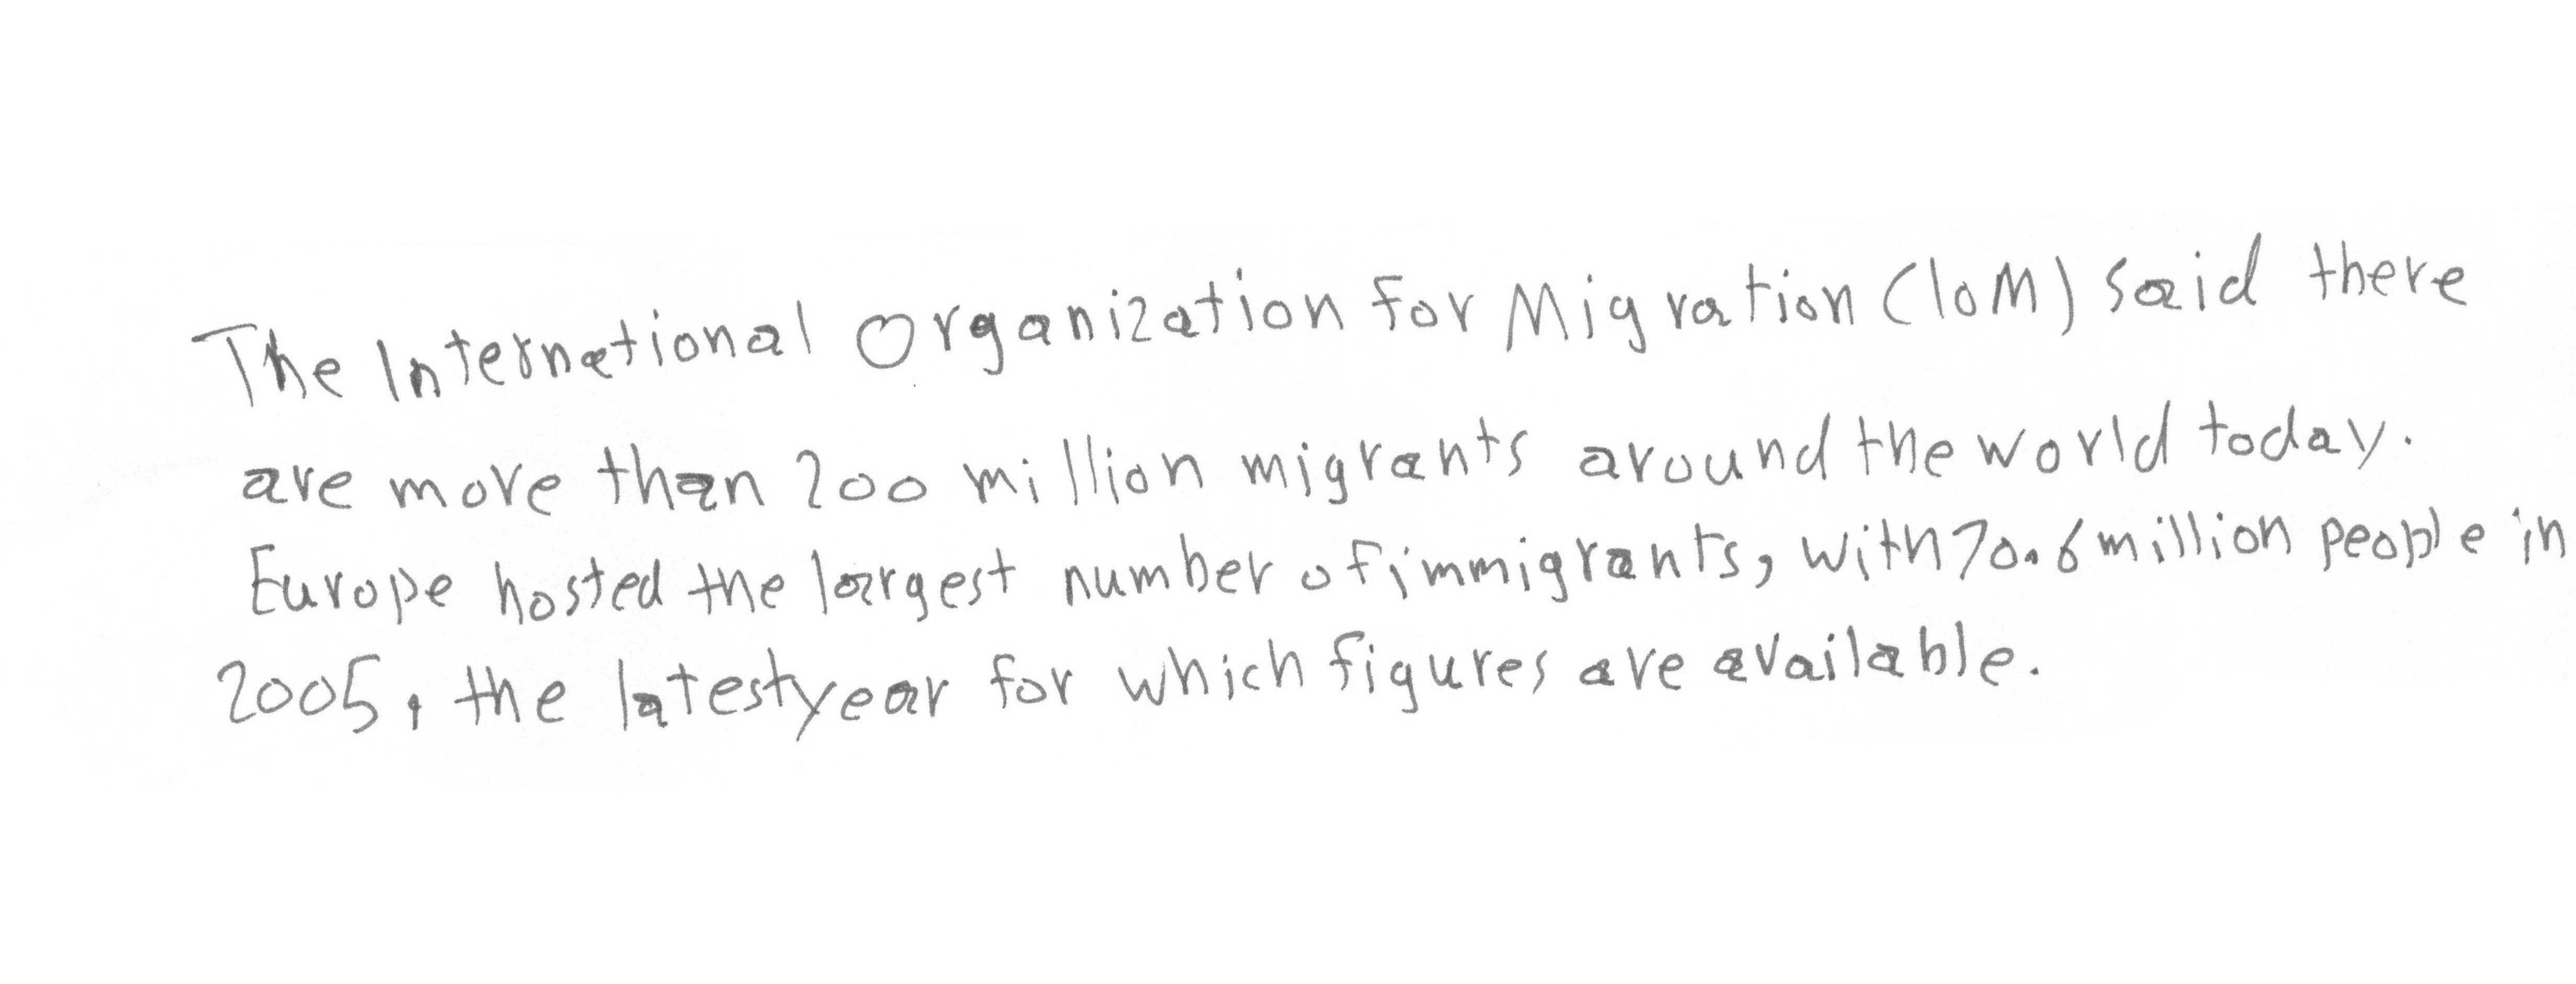 The International Organization for Migration (IOM) said there
are more than 200 million migrants around the world today.
Europe hosted the largest number of immigrants, with 70.6 million people in
2005, the latest year for which figures are available.